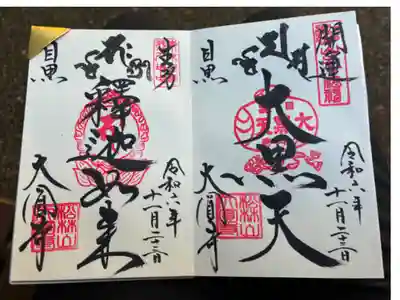 開運
令和六年
十一月二十三日
大黒天
目黒
大圓寺
松林山
生身
令和六年
十一月二十三日
釋迦如来
目黒
大圓寺
松林山